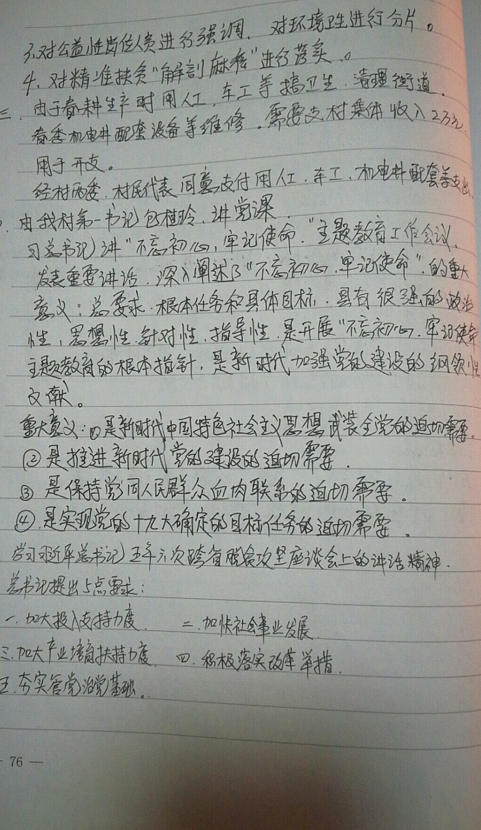 3.对公益性岗位人员进行强调，对环境卫生进行分片。
4、对精准扶贫"解剖麻雀"进行落实。
三、由于春耕生产时用人工、车工等搞卫生、清理街道。
春季机电井配套设备等维修。需要支村集体收入2万元
用于开支。
经村两委、村民代表同意支付用人工、车工、机电井配套等支出
由我村第一书记包植玲，讲党课
习总书记讲"不忘初心，牢记使命，"主题教育工作会议，
发表重要讲话，深入阐述了"不忘初心，牢记使命"，的重大
意义；总要求、根本任务和具体目标，具有很强的政治
性，思想性、针对性、指导性，是开展"不忘初心、牢记使命
主题教育的根本指针，是新时代加强党的建设的纲领性
文献。
重大意义：①是新时代中国特色社会主义思想武装全党的迫切需要。
②是推进新时代党的建设的迫切需要，
③是保持党同人民群众血肉联系的迫切需要。
④是实现党的十九大确定的目标任务的迫切需要。
学习习近平总书记五年六次跨省脱贫攻坚座谈会上的讲话精神.
总书记提出5点要求：
一.加大投入支持力度 二.加快社会事业发展
三.加大产业培育扶持力度 四.积极落实改革举措.
五.夯实管党治党基础。
76 —